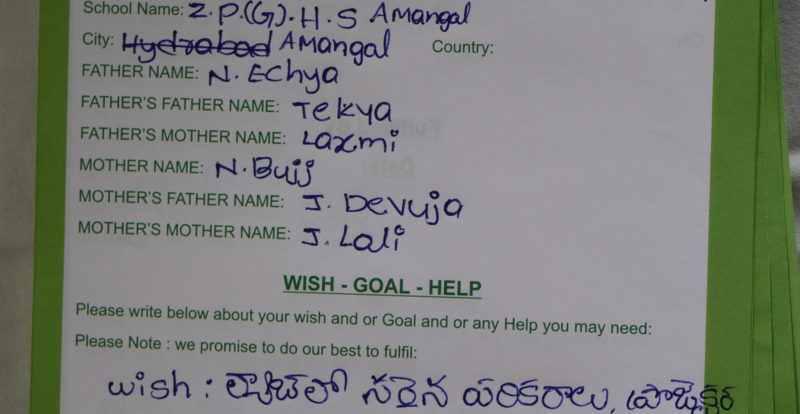 School Name: Z.P.(G).H.S Amangal
City: Hydrabad Amangal Country:
FATHER NAME: N. Echya
FATHER'S FATHER NAME: Tekya
FATHER'S MOTHER NAME: Laxmi
MOTHER NAME: N.Bujj
MOTHER'S FATHER NAME: J. Devuja
MOTHER'S MOTHER NAME: J. Lali
WISH - GOAL - HELP
Please write below about your wish and or Goal and or any Help you may need:
Please Note : we promise to do our best to fulfil:
wish : ల్యాబ్‌లో సరైన పరికరాలు, ప్రొజెక్టర్